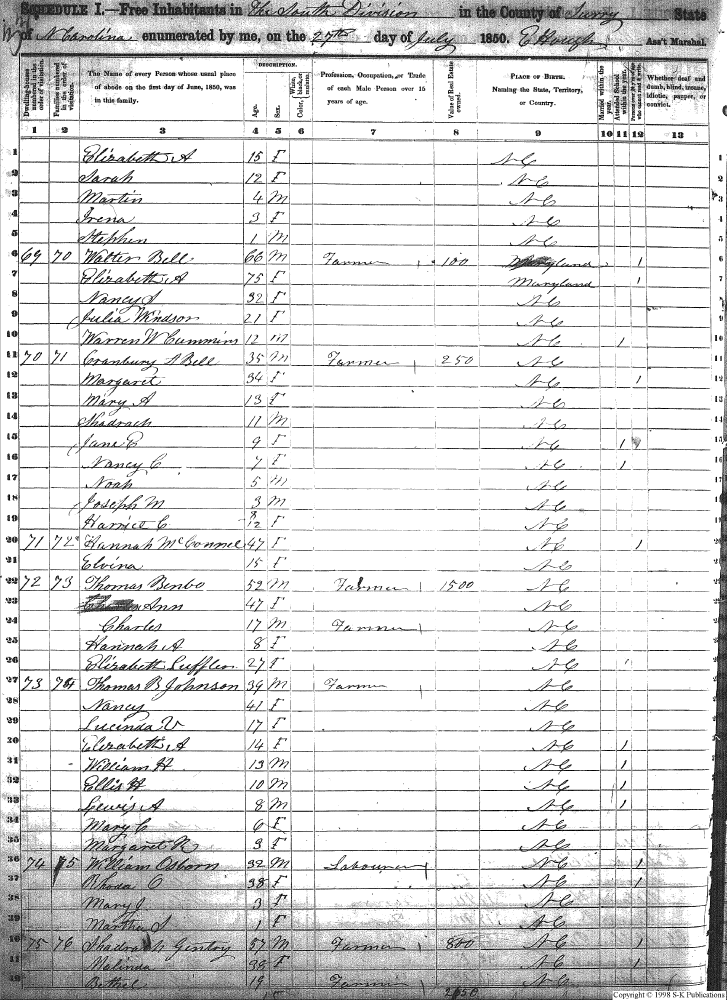 SCHEDULE I.—Free Inhabitants in The South Division in the County of Surry State
of N Carolina enumerated by me, on the 27th day of July 1850. E Hough Ass't Marshal.
Dwelling-houses numbered in the order of visitation.
Families numbered in the order of visitation.
The Name of every Person whose usual place of abode on the first day of June, 1850, was in this family.
DESCRIPTION.
Age.
Sex.
White, Color, black, or mulatto.
Profession, Occupation, or Trade of each Male Person over 15 years of age.
Value of Real Estate owned.
PLACE OF BIRTH. Naming the State, Territory, or Country.
Married within the year.
Attended School within the year.
Whether deaf and dumb, blind, insane, idiotic, pauper, or convict.
1 2 3 4 5 6 7 8 9 10 11 12 13
1 Elizabeth A 15 F N C 1
2 Sarah 12 F N C 2
3 Martin 4 M N C 3
4 Irena 3 F N C 4
5 Stephen 1 M N C 5
6 69 70 Walter Bell 66 M Farmer 100 Maryland 1 6
7 Elizabeth A 75 F Maryland 1 7
8 Nancy S 32 F N C 8
9 Julia Windson 21 F N C 9
10 Warren W Cummins 12 M N C 1 10
11 70 71 Cranbury A Bell 35 M Farmer 250 N C 11
12 Margaret 34 F N C 1 12
13 Mary A 13 F N C 13
14 Shadrach 11 M N C 14
15 Jane E 9 F N C 1 15
16 Nancy C 7 F N C 1 16
17 Noah 5 M N C 17
18 Joseph M 3 M N C 18
19 Harriet C F N C 19
20 71 72 Hannah McConnel 47 F N C 1 20
21 Elvina 15 F N C 21
22 72 73 Thomas Benbo 52 M Farmer 1500 N C 22
23 Ann 47 F N C 23
24 Charles 17 M Farmer N C 24
25 Hannah A 8 F N C 25
26 Elizabeth 27 F N C 26
27 73 74 Thomas B Johnson 39 M Farmer N C 27
28 Nancy 41 F N C 28
29 Lucinda V 17 F N C 29
30 Elizabeth A 14 F N C 1 30
31 William H 13 M N C 1 31
32 Ellis H 10 M N C 1 32
33 Lewis A 8 M N C 1 33
34 Mary C 6 F N C
35 Margaret R 3 F N C
36 74 75 William Osborn 32 M Labourer N C 1
37 Rhoda C 38 F N C 1
38 Mary J 3 F N C
39 Martha S 1 F N C
40 75 76 Shadrach Gentry 57 M Farmer 800 N C 1
41 Malinda 38 F N C 1
42 Bethel 19 Farmer N C
Copyright © 1998 S-K Publications